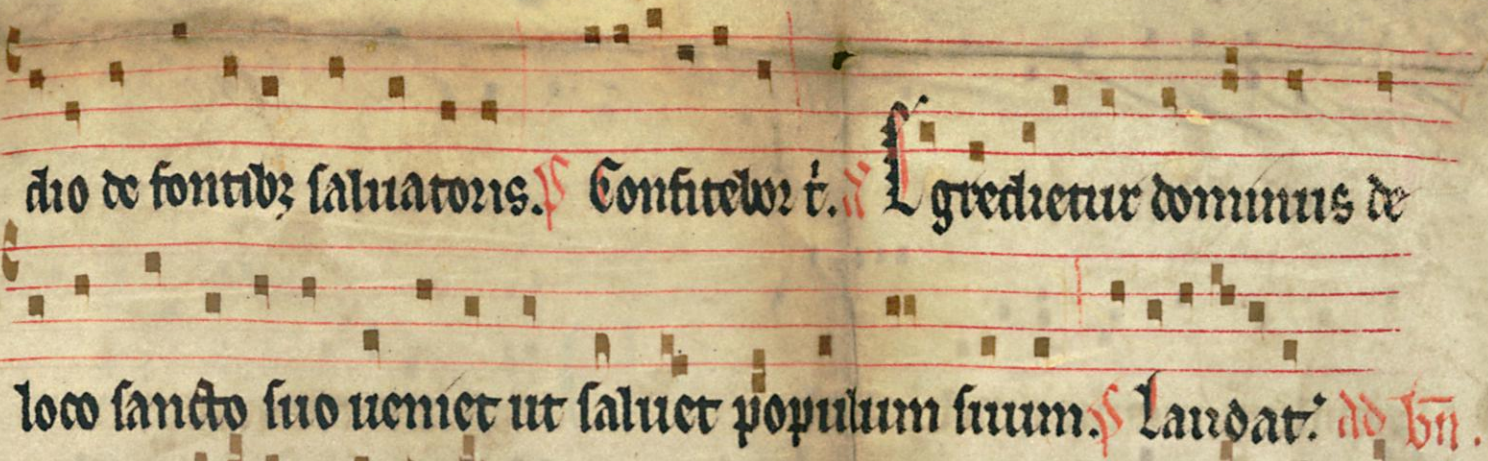 dio de fontibꝫ saluatoris. ps Confitebor t̄. aͣ Egredietur dominus de
loco sancto suo ueniet ut saluet populum suum. ps Laudat᷒ ad bn̄.